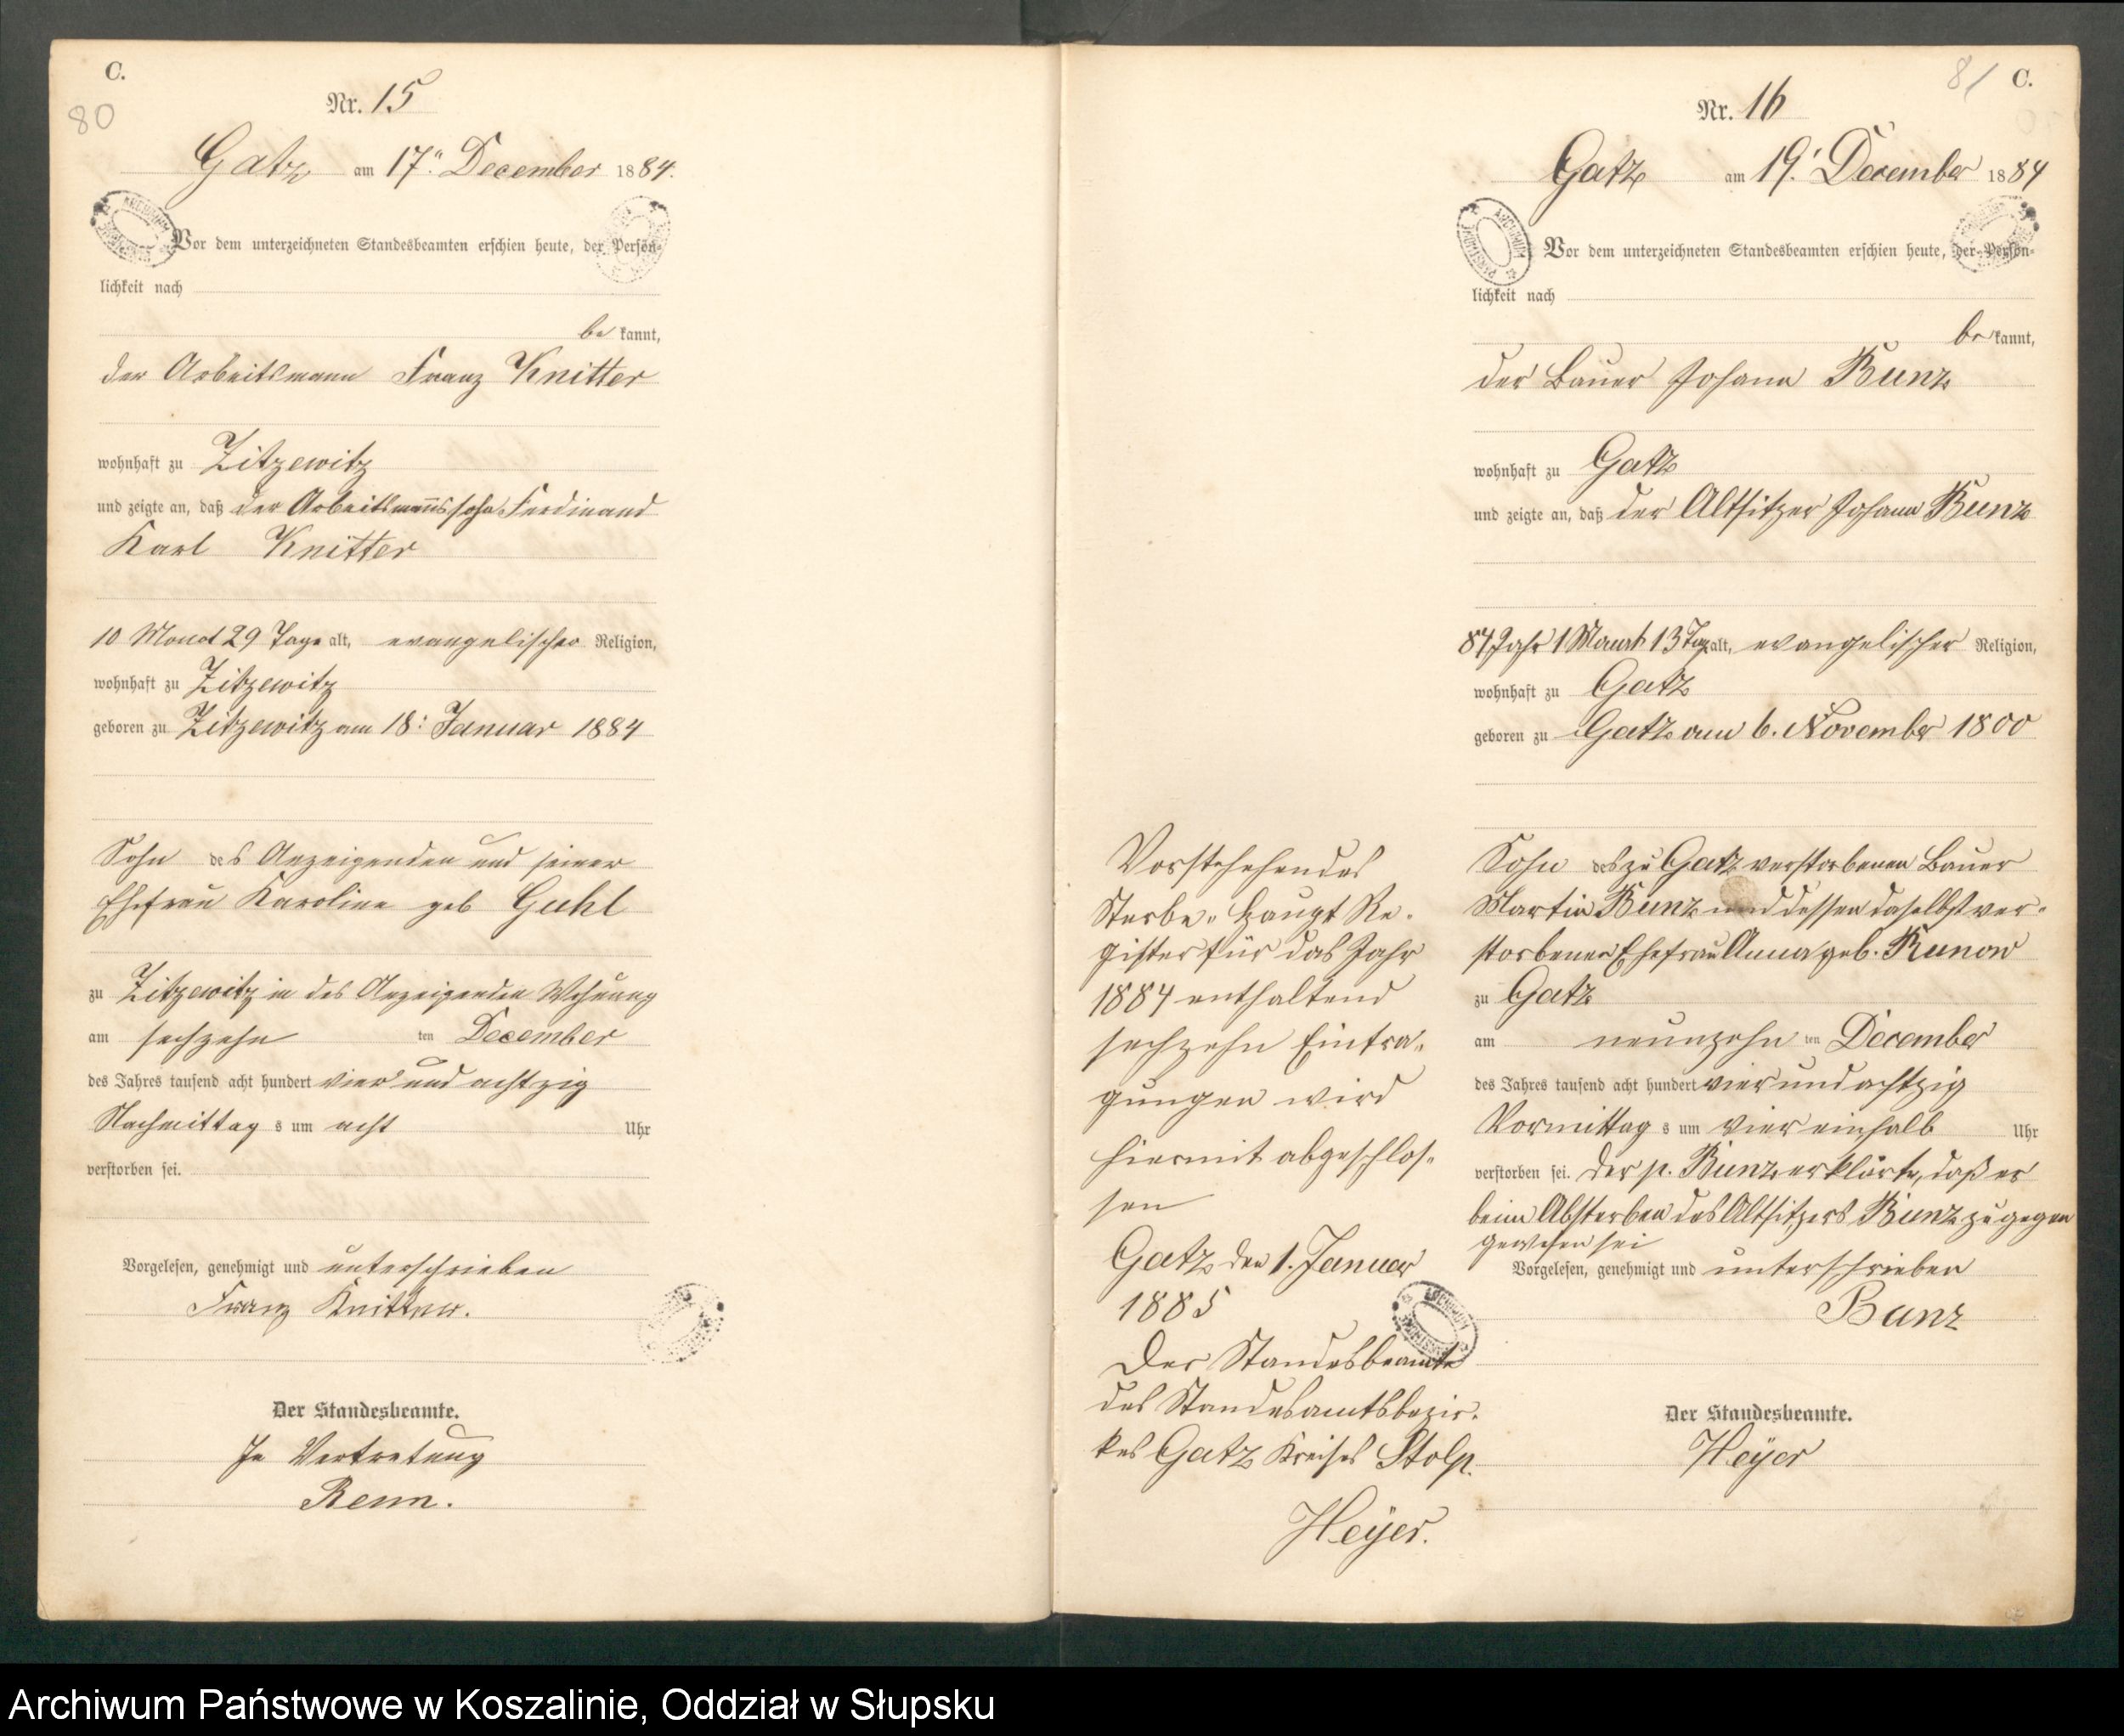 C.
80
Nr. 15
Gatz am 17. December 1884.
Vor dem unterzeichneten Standesbeamten erschien heute, der Persön-
lichkeit nach
be kannt,
der Arbeitsmann Franz Knitter
wohnhaft zu Zitzewitz
und zeigte an, daß der Arbeitsmannssohn Ferdinand
Karl Knitter
10 Monat 29 Tage alt, evangelischer Religion,
wohnhaft zu Zitzewitz
geboren zu Zitzewitz am 18. Januar 1884
Sohn des Anzeigenden und seiner
Ehefrau Karoline geb Guhl
zu Zitzewitz in des Anzeigenden Wohnung
am sechzehn ten December
des Jahres tausend acht hundert vier und achtzig
Nachmittag s um acht Uhr
verstorben sei.
Vorgelesen, genehmigt und unterschrieben
Franz Knitter.
Der Standesbeamte.
In Vertretung
81 C.
Nr. 16
Gatz am 19. December 1884
Vor dem unterzeichneten Standesbeamten erschien heute, der Persön-
lichkeit nach
be kannt,
der Bauer Johann Bunz
wohnhaft zu Gatz
und zeigte an, daß der Altsitzer Johann Bunz
84 Jahr 1 Monat 13 Tag alt, evangelischer Religion,
wohnhaft zu Gatz
geboren zu Gatz am 6. November 1800
Sohn des zu Gatz verstorbenen Bauer
Martin Bunz und dessen daselbst ver-
storbenen Ehefrau Anna geb. Kunow
zu Gatz
am neunzehn ten December
des Jahres tausend acht hundert vier und achtzig
Vormittag s um vier einhalb Uhr
verstorben sei. Der p. Bunz erklärte, daß er
beim Absterben des Altsitzers Bunz zugegen
gewesen sei
Vorgelesen, genehmigt und unterschrieben
Bunz
Der Standesbeamte.
Heyer
Vorstehehendes
Sterbe-Haupt Re-
gister für das Jahr
1884 enthaltend
sechzehn Eintra-
gungen wird
hiermit abgeschlos-
sen
Gatz den 1. Januar
1885
Der Standesbeamte
des Standesamtsbezir-
kes Gatz Kreises Stolp.
Heyer.
Archiwum Państwowe w Koszalinie, Oddział w Słupsku